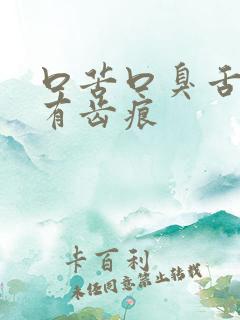 口苦口臭舌
有齿痕
卡百利
未经同意禁止转载